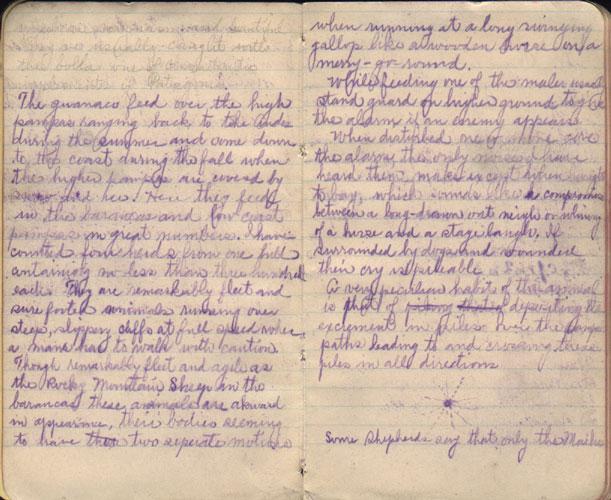 they are usually caught with
the bolla one of
of Patagonia
The guanaco feed over the high
pampas ranging back to the Andes
during the summer and come down
to the coast during the fall when
the higher pampas are covered by
snow and ice. Here they feed
in the barancas and low coast
pampas in great numbers. I have
counted four herds from one hill
containing no less than three hundred
each. They are remarkably fleet and
sure footed animals running over
steep, slippery cliffs at full speed where
a man has to walk with caution
Though remarkably fleet and agile as
the Rocky Mountain Sheep in the
barancas these animals are akward
in appearance, their bodies seeming
to have two seperate motions
when running at a long swinging
gallop like a wooden horse on a
merry-go-round.
While feeding one of the males
stand guard on higher ground to give
the alarm if an enemy appears
When disturbed one or more give
the alarm, the only noise I have
heard them make is
to bay, which sounds like a compromise
between a long-drawn out neigh or whinny
of a horse and a stage laugh. If
surrounded by dogs and wounded
their cry is piteable
A very peculiar habit of this animal
is that of depositing the
excrement in piles here the
paths leading to and crossing these
piles in all directions
Some shepherds say that only the Males